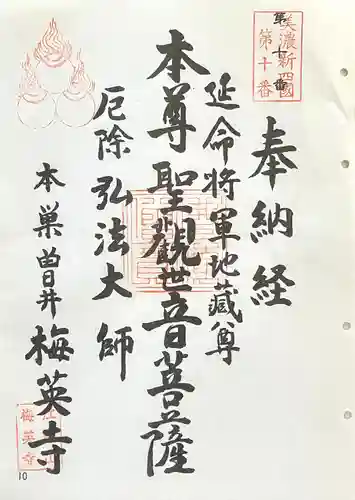 美濃新四國
第十番
第十番
奉納経
延命将軍地蔵尊
本尊聖觀世音菩薩
厄除弘法大師
本巣曽井
梅英寺
梅英寺
10